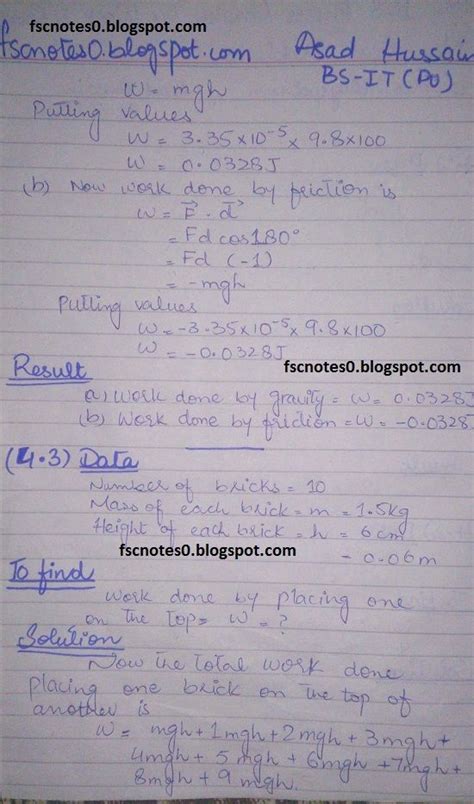 fscnotes0.blogspot.com
fscnotes0.blogspot.com Asad Hussain
BS-IT (PU)
W = mgh
Putting values
W = 3.35×10⁻⁵ × 9.8×100
W = 0.0328J
(b) Now work done by friction is
W = F⃗ . d⃗
= Fd cos180°
= Fd (-1)
= -mgh
Putting values
W = -3.35×10⁻⁵ × 9.8×100
W = -0.0328J
Result fscnotes0.blogspot.com
a) Work done by gravity = W = 0.0328J
(b) Work done by friction = W = -0.0328J
(4.3) Data
Number of bricks = 10
Mass of each brick = m = 1.5kg
Height of each brick = h = 6cm
fscnotes0.blogspot.com = 0.06m
To find
work done by placing one
on the top = W = ?
Solution
Now the total work done
placing one brick on the top of
another is
W = mgh + 1mgh + 2mgh + 3mgh +
4mgh + 5mgh + 6mgh + 7mgh +
8mgh + 9mgh.